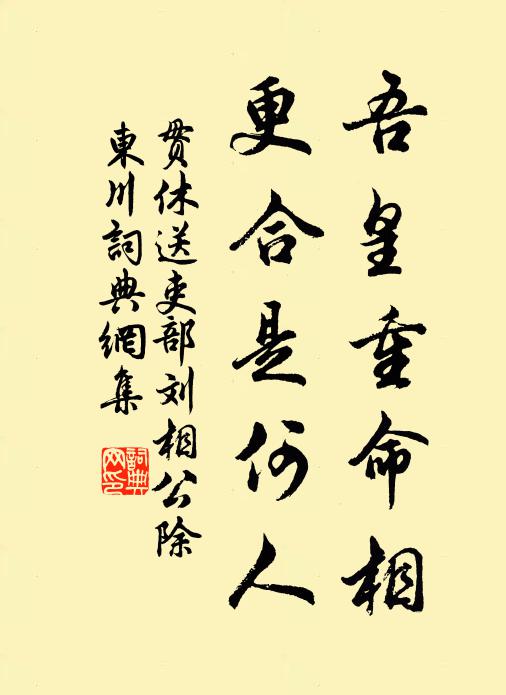 吾皇重命相
更合是何人
贯休送吏部刘相公除
東川詞典網集
詞典
网印